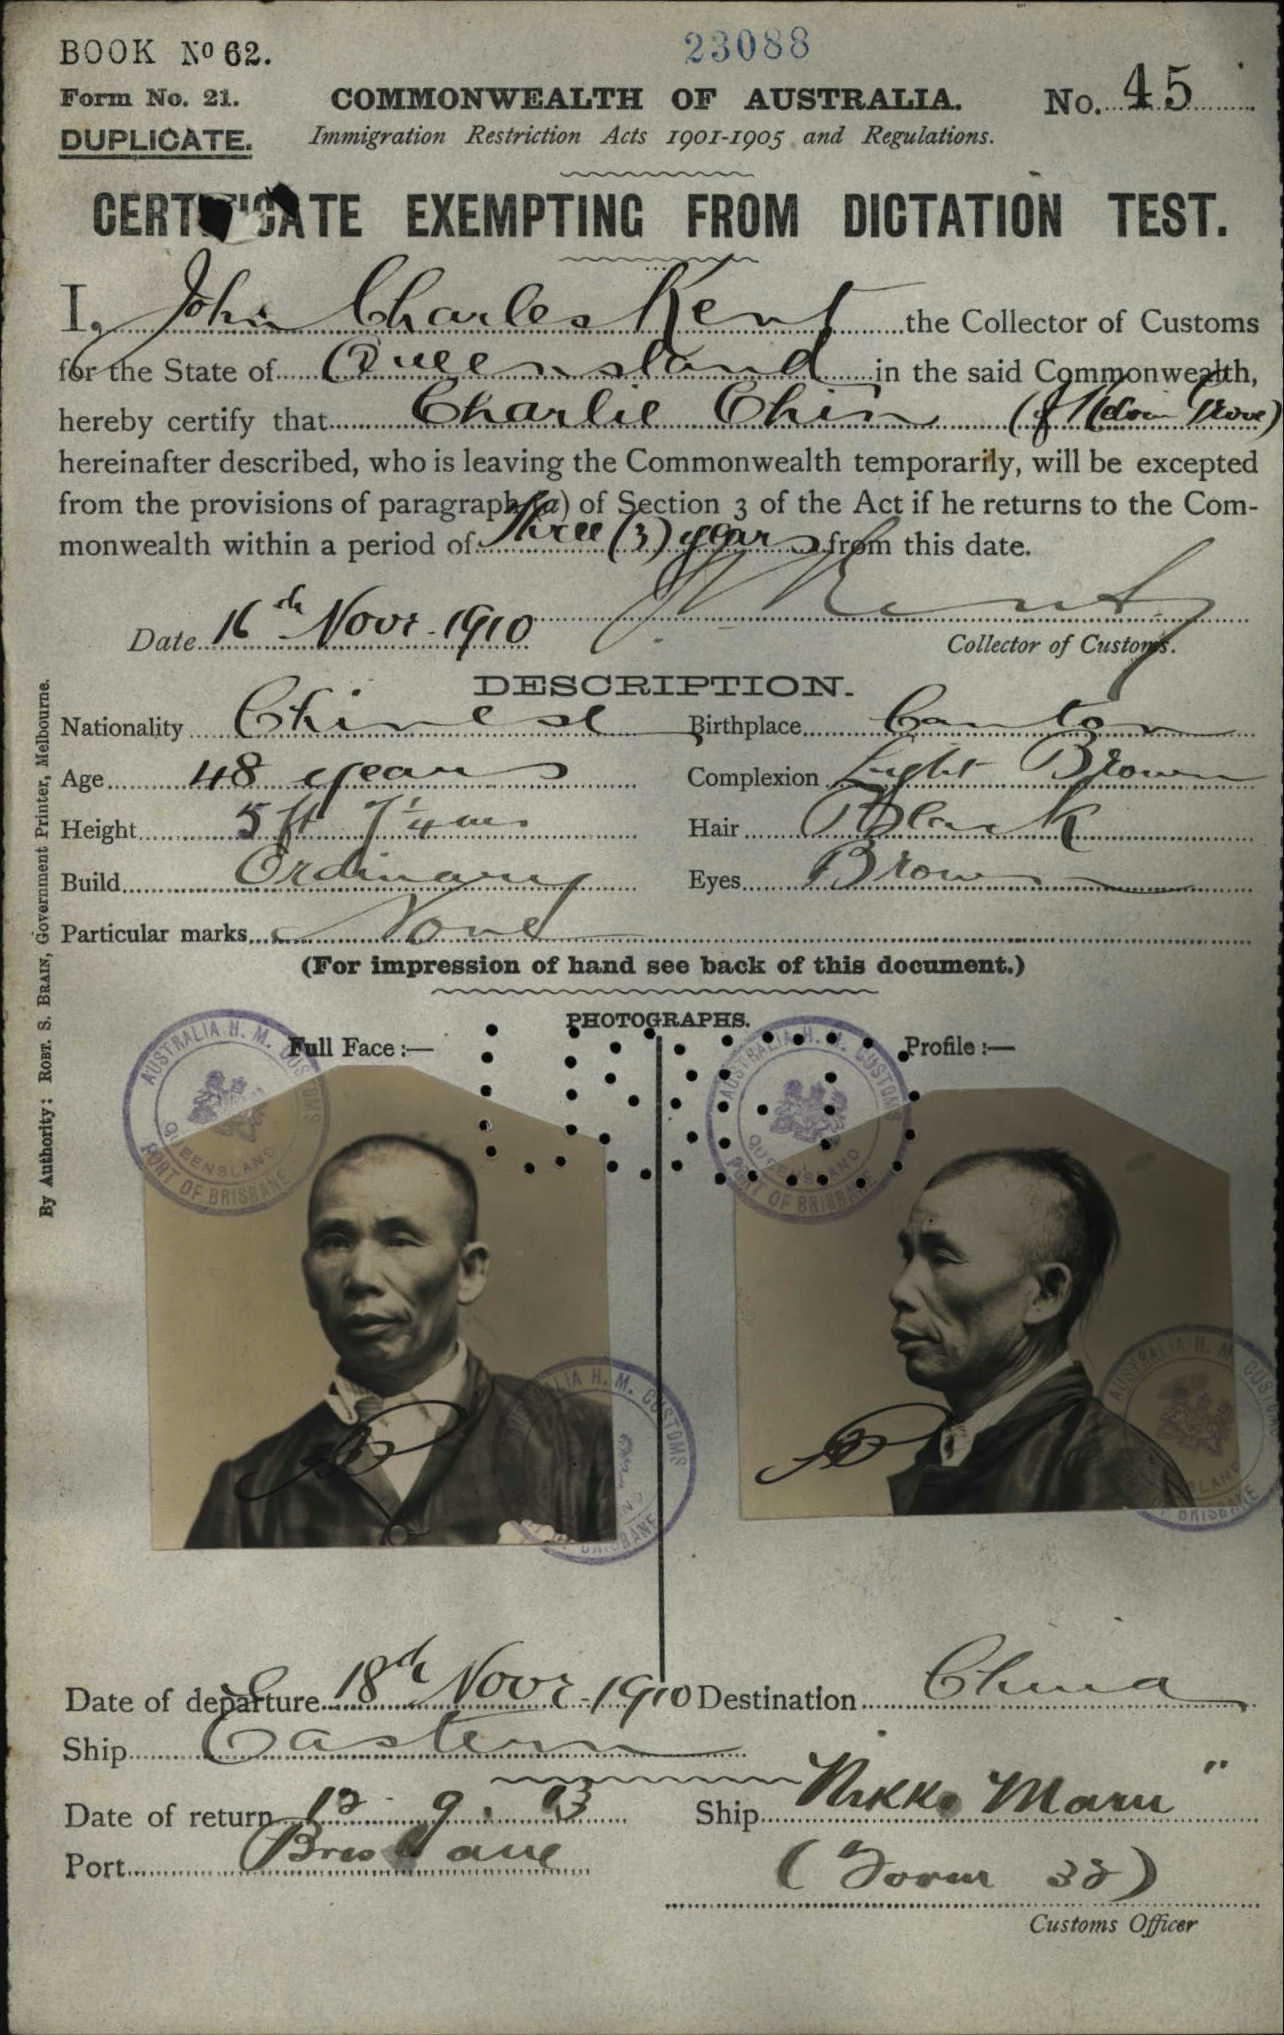 BOOK No 62.
23088
Form No. 21.
COMMONWEALTH OF AUSTRALIA.
No. 45
DUPLICATE.
Immigration Restriction Acts 1901-1905 and Regulations.
CERTIFICATE EXEMPTING FROM DICTATION TEST.
I, John Charles Kent the Collector of Customs
for the State of Queensland in the said Commonwealth,
hereby certify that Charlie Chin (of Kelvin Grove)
hereinafter described, who is leaving the Commonwealth temporarily, will be excepted
from the provisions of paragraph (a) of Section 3 of the Act if he returns to the Com-
monwealth within a period of Three (3) years from this date.
Date 16th Novr. 1910
Collector of Customs.
DESCRIPTION.
Nationality Chinese Birthplace Canton
Age 48 years Complexion Light Brown
Height 5 ft 7 1/4 ins Hair Black
Build Ordinary Eyes Brown
Particular marks None
(For impression of hand see back of this document.)
PHOTOGRAPHS.
Full Face :— Profile :—
AUSTRALIA H. M. CUSTOMS
QUEENSLAND
PORT OF BRISBANE
AUSTRALIA H. M. CUSTOMS
QUEENSLAND
PORT OF BRISBANE
LIA H. M. CUSTOMS
BRISBANE
AUSTRALIA H. M. CUS
LAND
BRISBANE
By Authority: ROBT. S. BRAIN, Government Printer, Melbourne.
Date of departure 18th Novr. 1910 Destination China
Ship Eastern
Date of return 12. 9. 13 Ship "Nikko Maru"
Port Brisbane
(Form 32)
Customs Officer